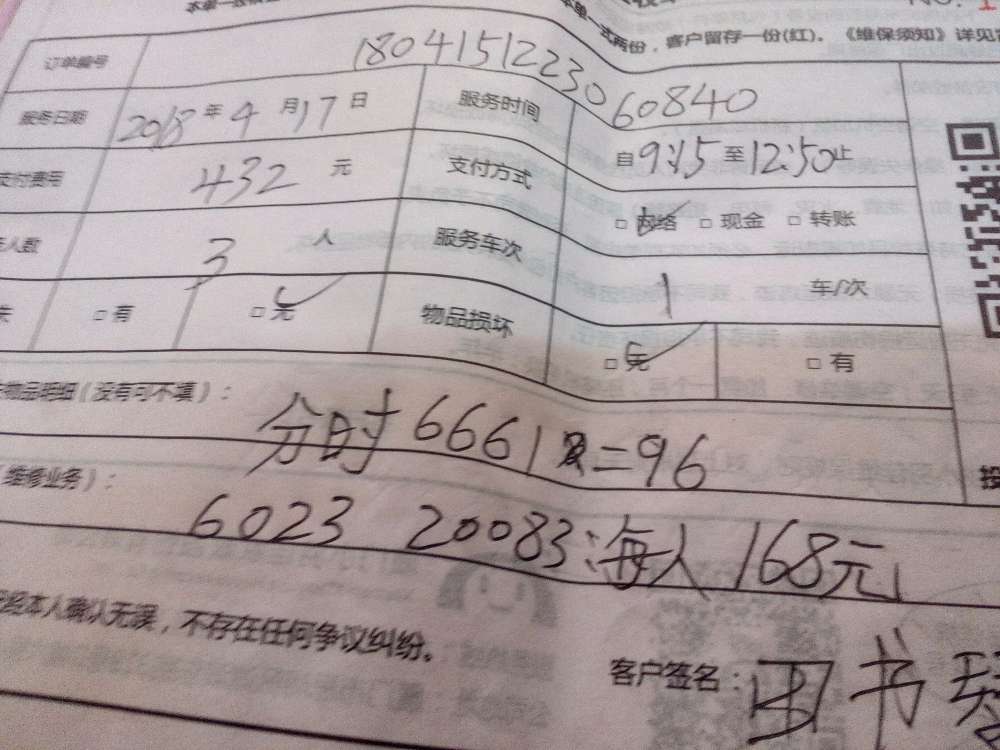 本单一式两份，客户留存一份(红)。《维保须知》详见
订单编号 1804151223060840
服务日期 2018年4月17日 服务时间 自9:15至12:50止
支付费用 432元 支付方式 □网络 □现金 □转账
人数 3人 服务车次 1 车/次
□有 □无 物品损坏 □无 □有
物品明细（没有可不填）：
分时 6661 =96
（维修业务）：
6023 20083:海人 168元
本人确认无误，不存在任何争议纠纷。
客户签名： 书